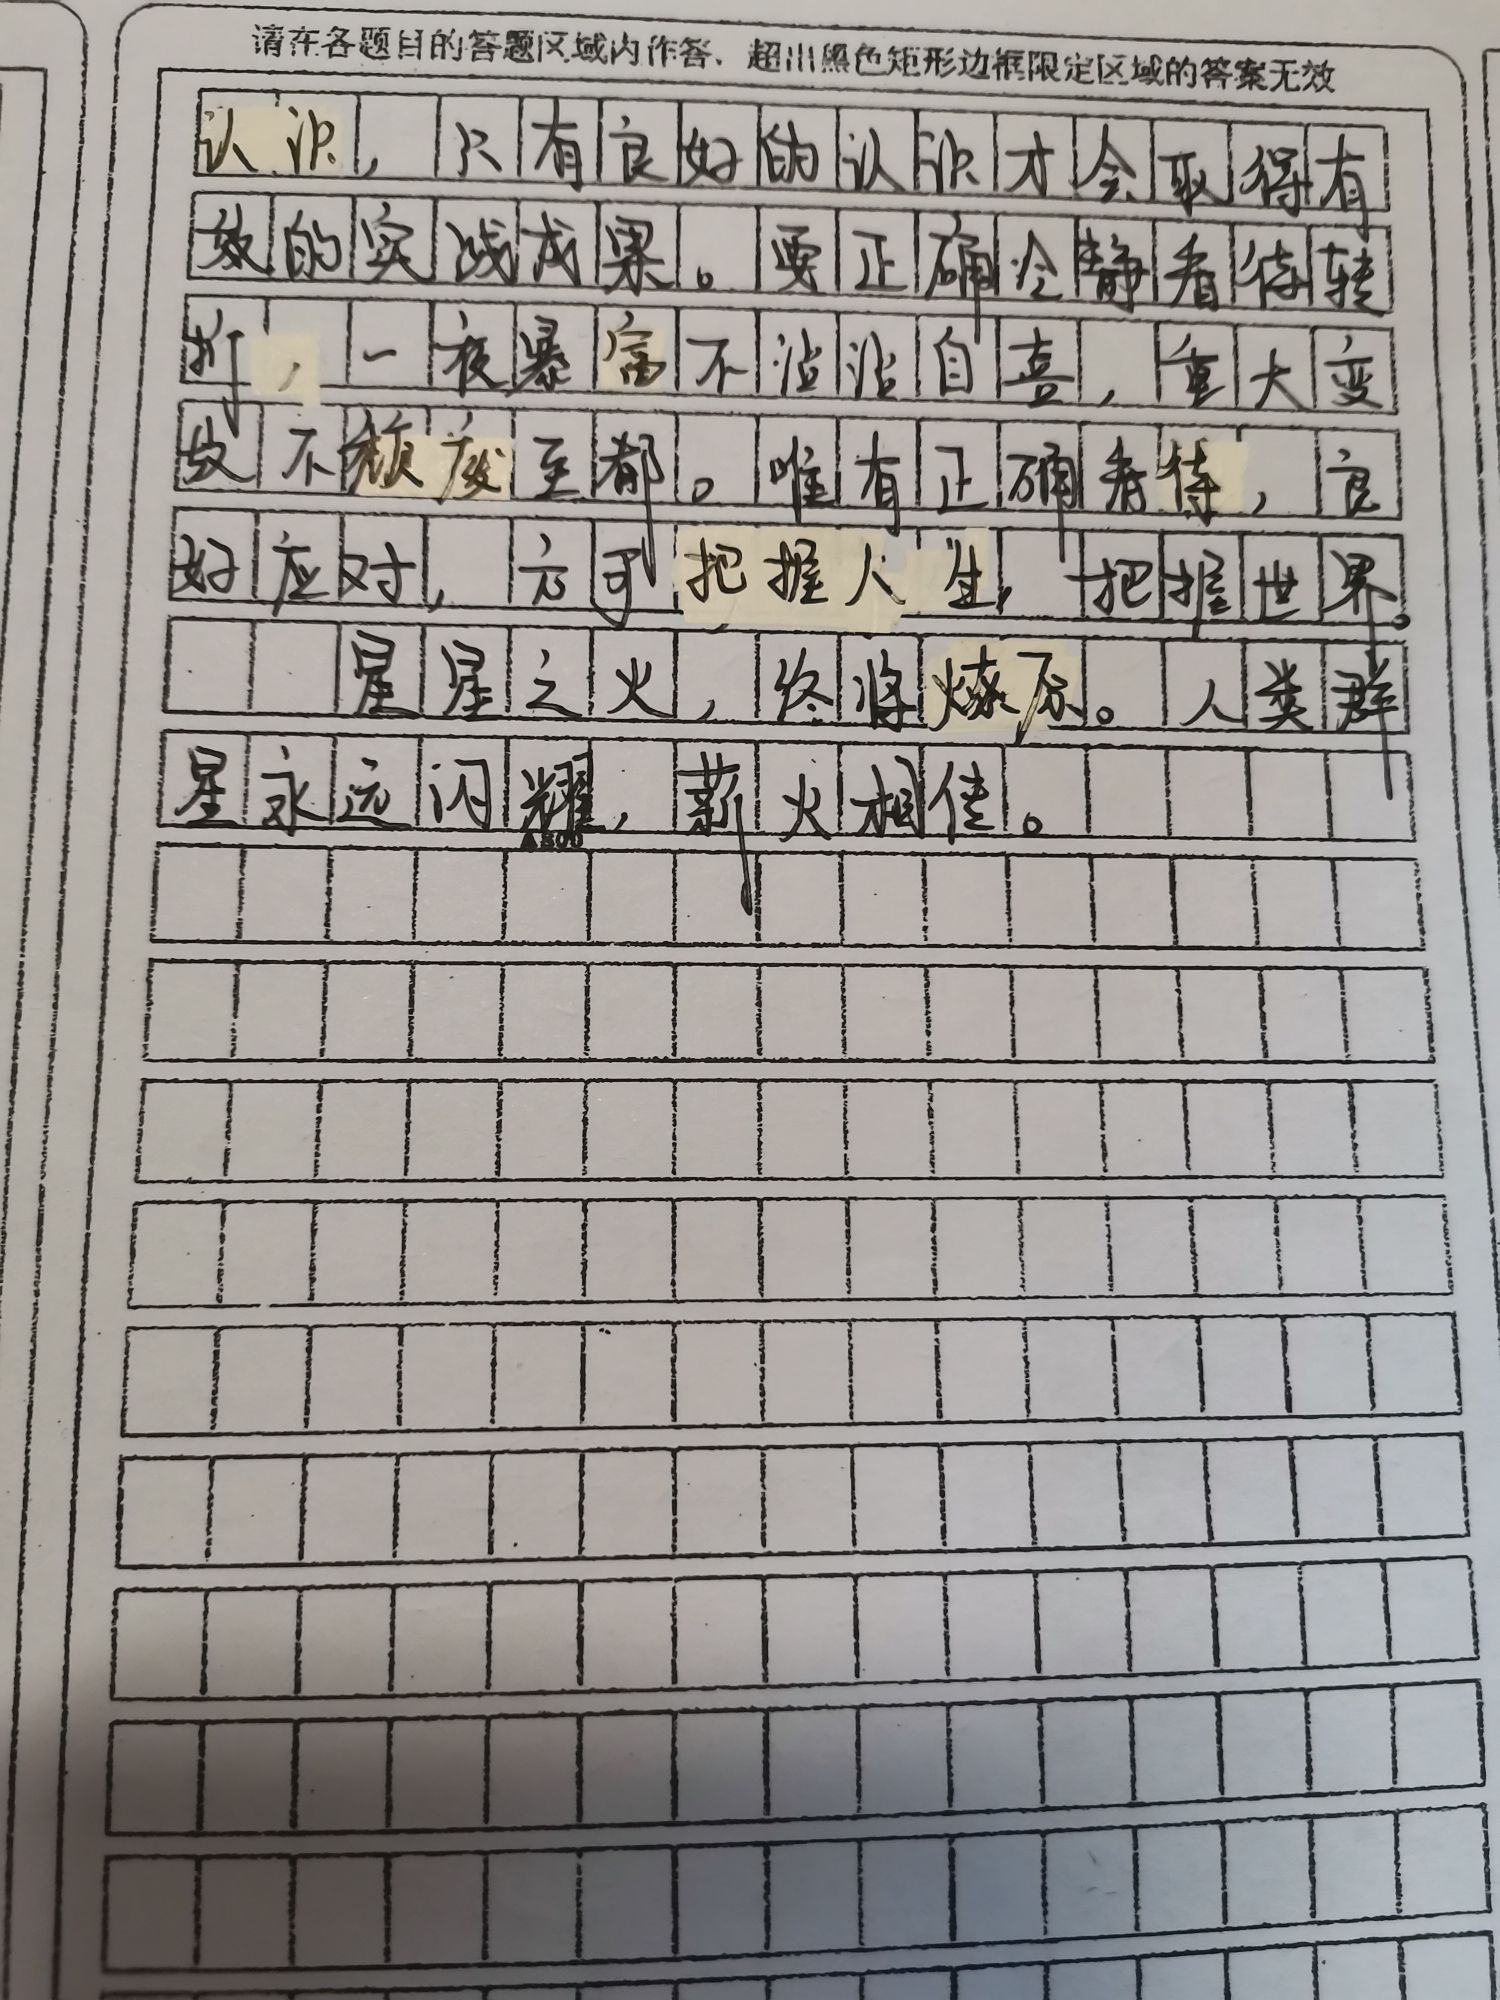 请在各题目的答题区域内作答，超出黑色矩形边框限定区域的答案无效
认识，只有良好的认识才会取得有
效的实战成果。要正确冷静看待转
折，一夜暴富不沾沾自喜，重大变
故不颓废至郁。唯有正确看待，良
好应对，方可把握人生，把握世界。
星星之火，终将燎原。人类群
星永远闪耀，薪火相传。
▲800